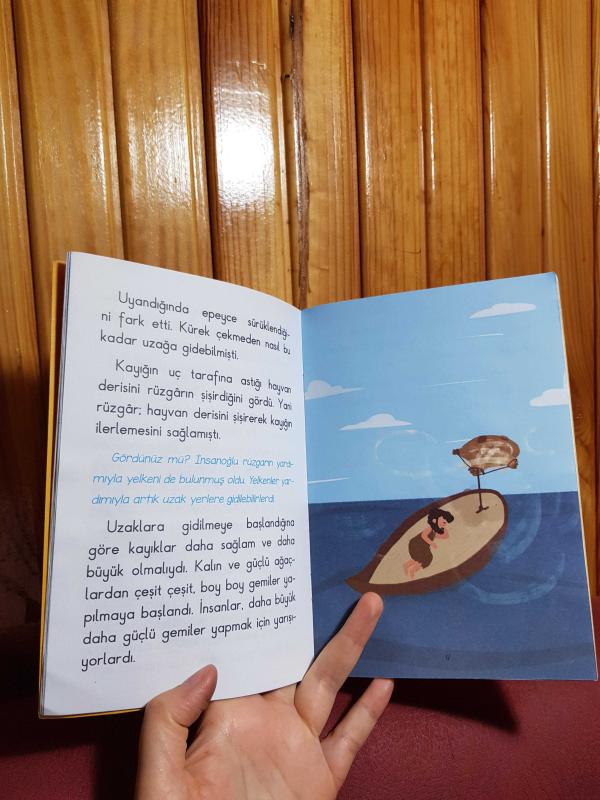 Uyandığında epeyce sürüklendiği-
ni fark etti. Kürek çekmeden nasıl bu
kadar uzağa gidebilmişti.
Kayığın uç tarafına astığı hayvan
derisini rüzgârın şişirdiğini gördü. Yani
rüzgâr; hayvan derisini şişirerek kayığın
ilerlemesini sağlamıştı.
Gördünüz mü? İnsanoğlu rüzgarın yardı-
mıyla yelkeni de bulunmuş oldu. Yelkenler yar-
dımıyla artık uzak yerlere gidilebilirlerdi.
Uzaklara gidilmeye başlandığına
göre kayıklar daha sağlam ve daha
büyük olmalıydı. Kalın ve güçlü ağaç-
lardan çeşit çeşit, boy boy gemiler ya-
pılmaya başlandı. İnsanlar, daha büyük
daha güçlü gemiler yapmak için yarışı-
yorlardı.